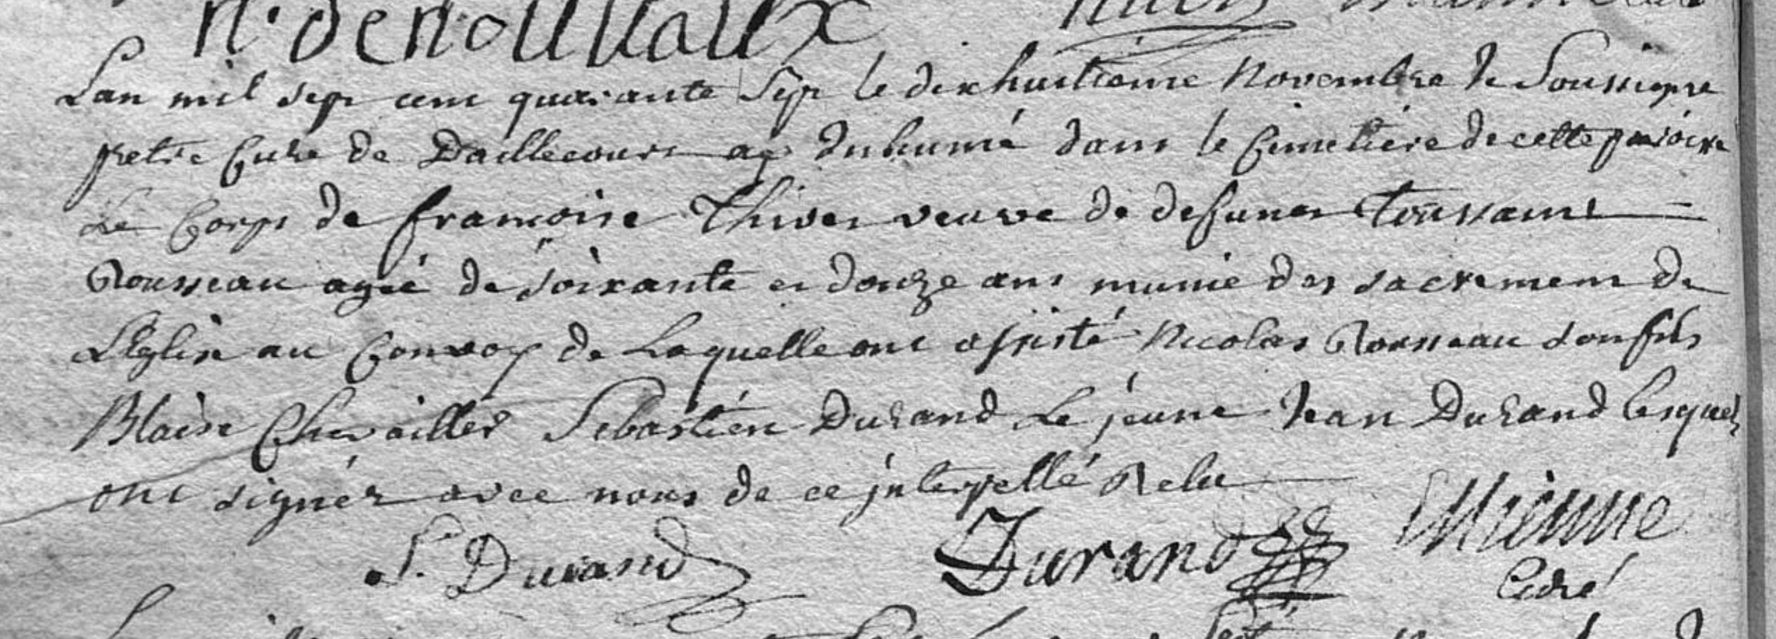 n. denouvaux
Lan mil sept cent quarante Sept le dixhuitieme Novembre Je Soussigne
pretre Curé de Daillecourt ay Inhumé dans le Cimetiere de cette paroisse
Le Corps de francoise Thivet veuve de defunct Toussaint
Rousseau agée de soixante et douze ans munie des sacrement de
LEglise au Convoy de Laquelle ont assisté Nicolas Rousseau son fils
Blaise Chevaillier Sebastien Durand Le jeune Jean Durand Lesquels
ont signér avec nous de ce jnterpellé Relu
S. Durand Durand Ettienne
Curé